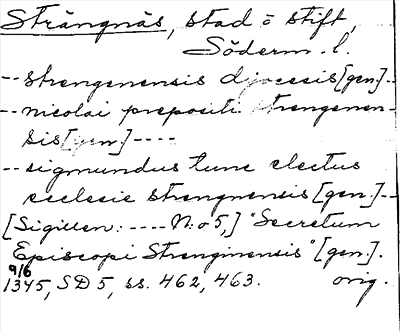 Strängnäs, stad o stift,
Söderm. l.
-- strengenensis dyocesis [gen.] --
-- nicolai prepositi strengenen-
sis [gen.] ----
-- sigmundus tunc electus
ecclesie strengnensis [gen.] --
[Sigillen: ---- N:o 5,] "Secretum
Episcopi Strenginensis" [gen.].
9/6
1345, SD 5, ss. 462, 463. orig.